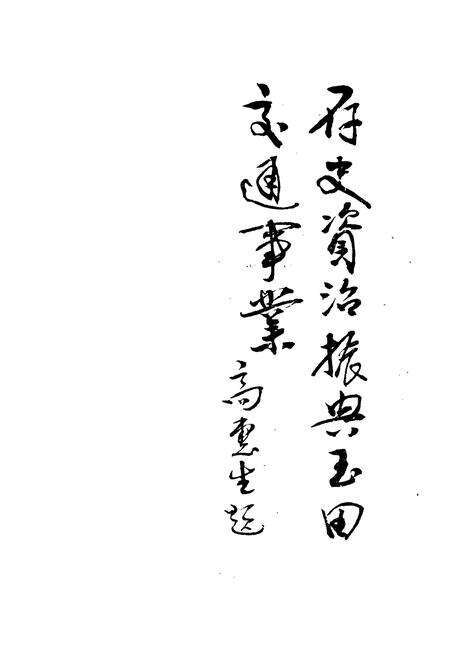 存史資治振興玉田
交通事業
高惠生题